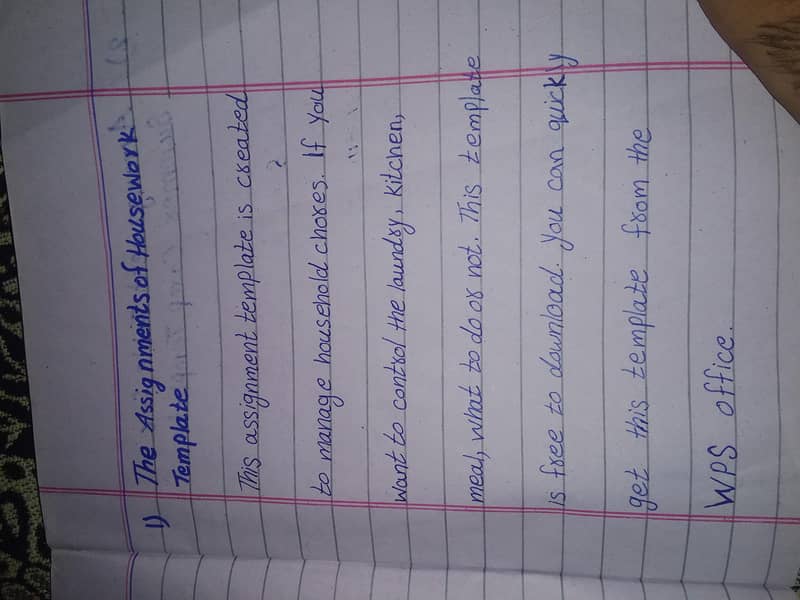 1) The Assignments of Housework
Template
This assignment template is created
to manage household chores. If you
want to control the laundry, kitchen,
meal, what to do or not. This template
is free to download. You can quickly
get this template from the
WPS office.